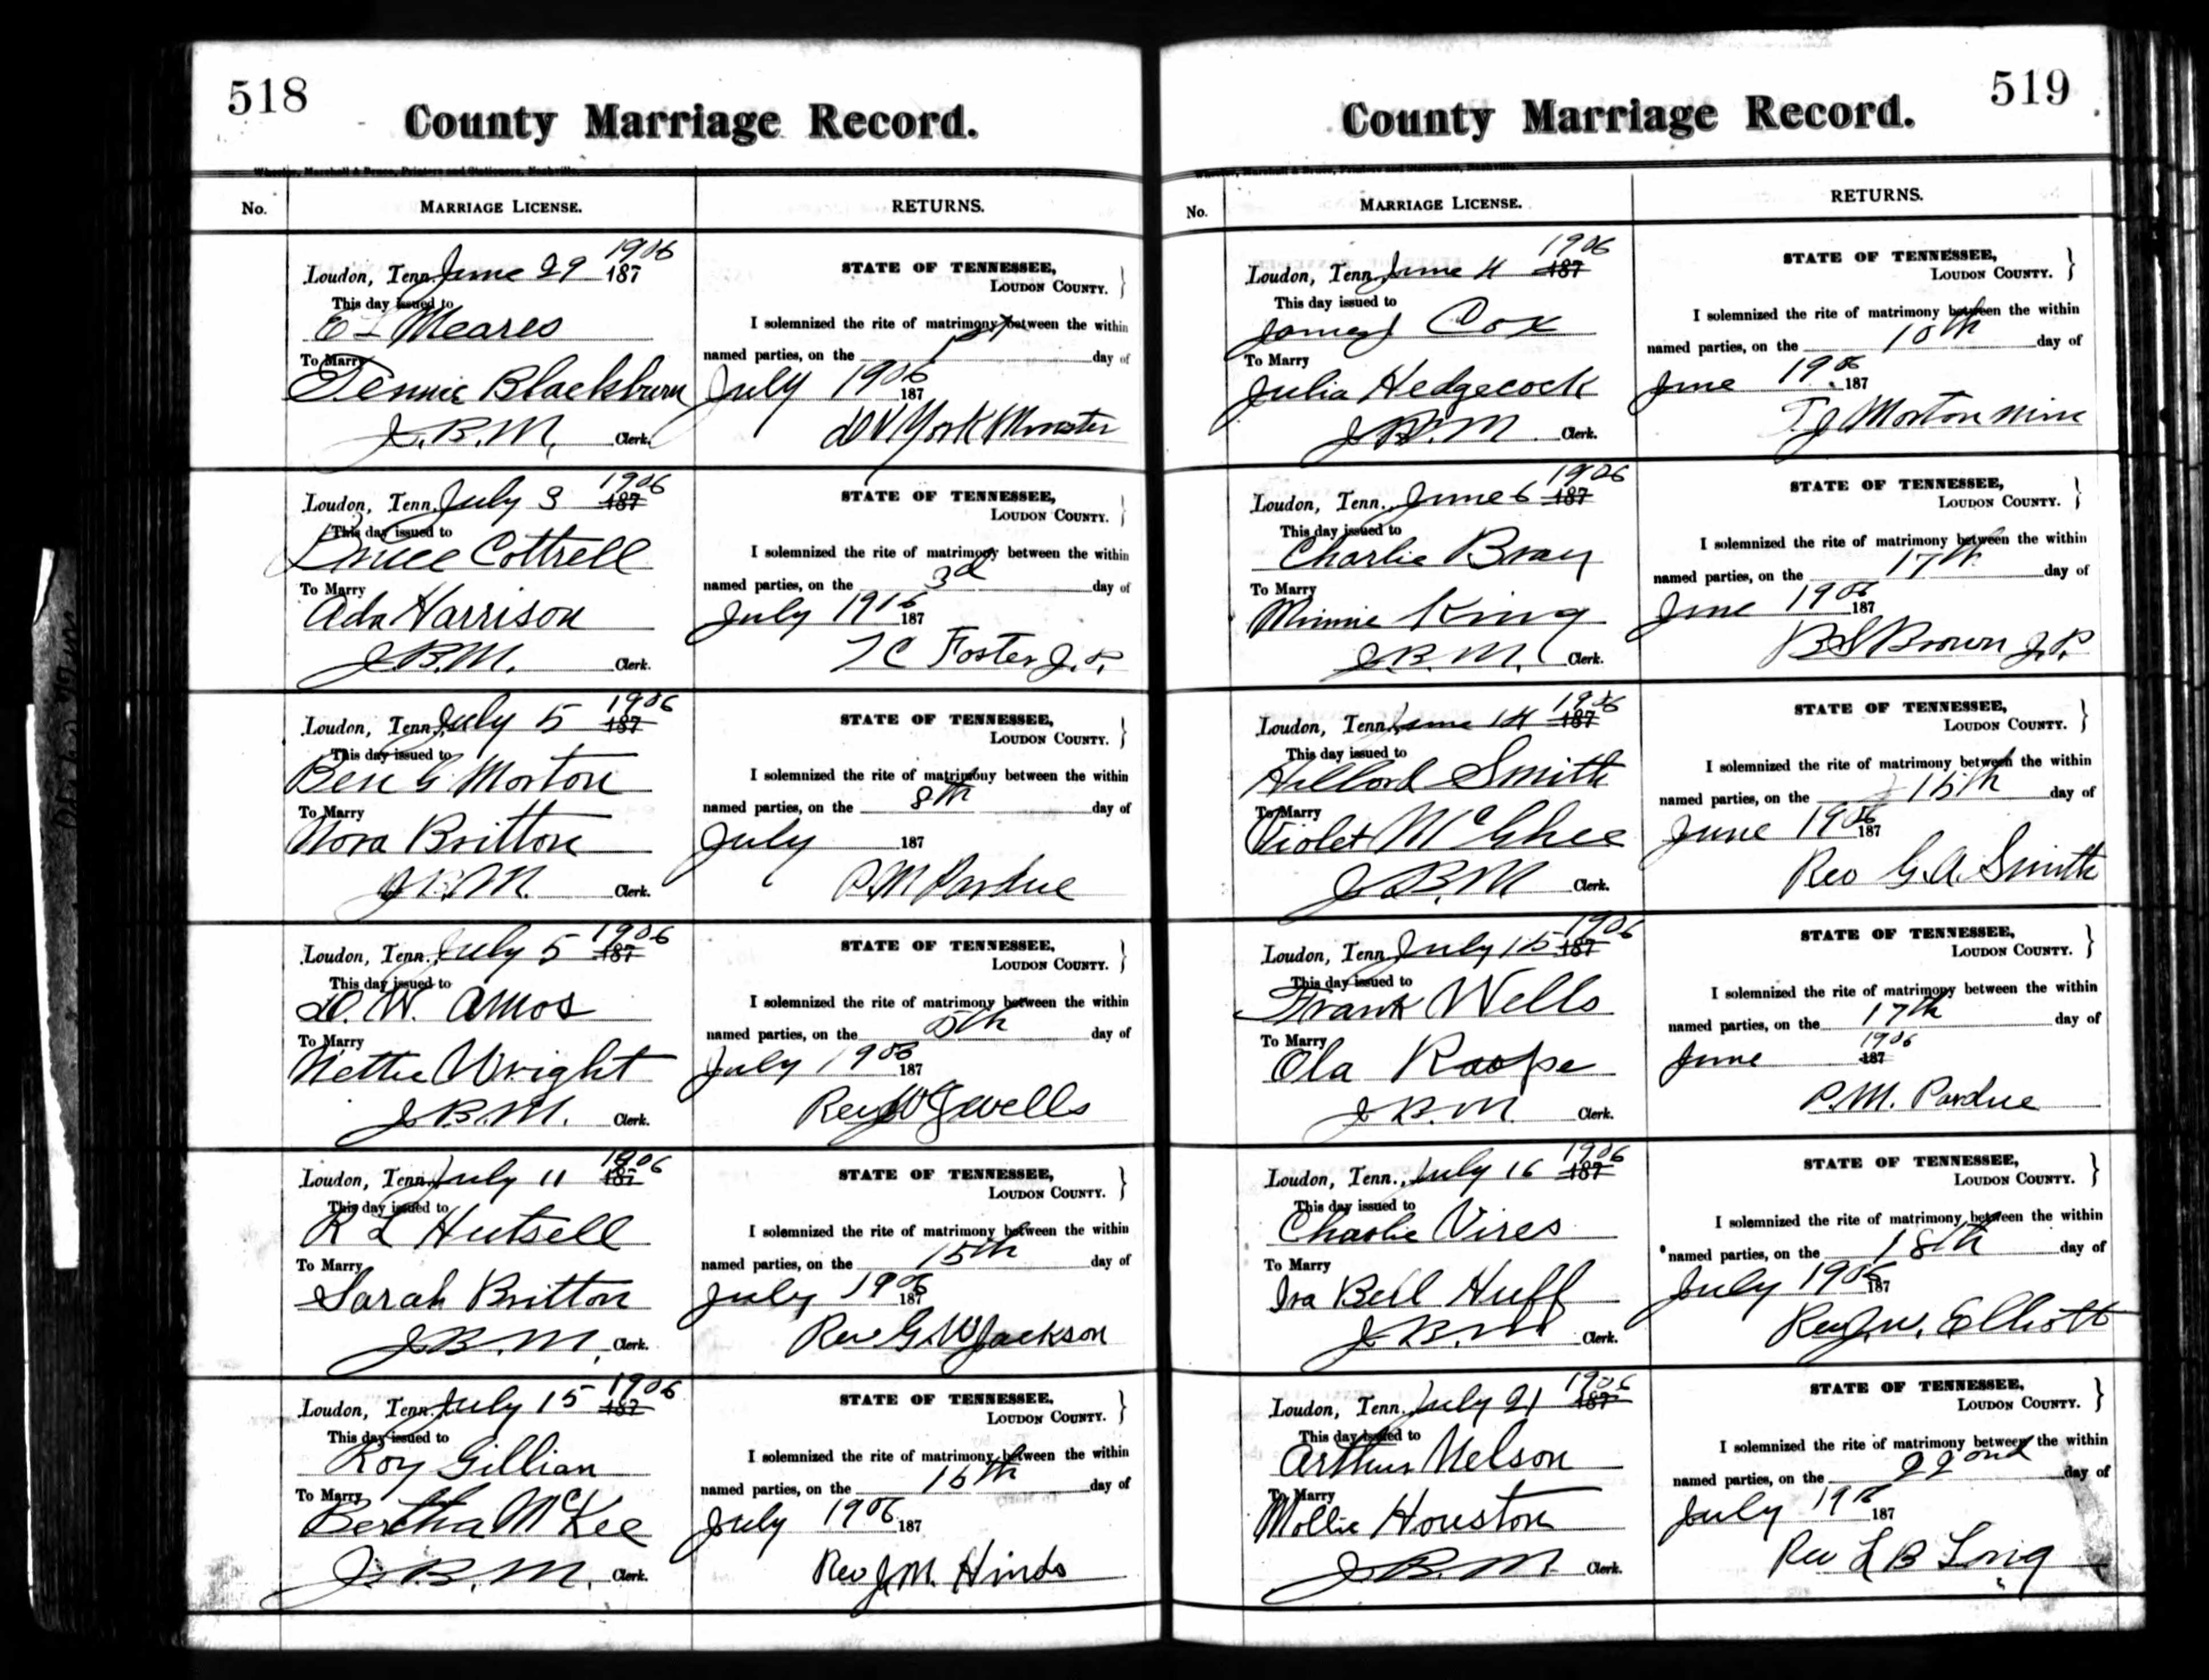 518
County Marriage Record.
Wheeler, Marshall & Bruce, Printers and Stationers, Nashville.
No. MARRIAGE LICENSE. RETURNS.
Loudon, Tenn. June 29 1906 187
This day issued to
E L Meares
To Marry
Tennie Blackburn
J.B.M. Clerk.
STATE OF TENNESSEE,
LOUDON COUNTY. }
I solemnized the rite of matrimony between the within
named parties, on the 1st day of
July 1906 187
York Minister
Loudon, Tenn. July 3 1906 187
This day issued to
Bruce Cottrell
To Marry
Ada Harrison
J.B.M. Clerk.
STATE OF TENNESSEE,
LOUDON COUNTY. }
I solemnized the rite of matrimony between the within
named parties, on the 3d day of
July 1906 187
T C Foster J.P.
Loudon, Tenn. July 5 1906 187
This day issued to
Ben G Morton
To Marry
Nora Britton
J.B.M. Clerk.
STATE OF TENNESSEE,
LOUDON COUNTY. }
I solemnized the rite of matrimony between the within
named parties, on the 8th day of
July 187
P M Pardue
Loudon, Tenn. July 5 1906 187
This day issued to
D. W. Amos
To Marry
Nettie Wright
J.B.M. Clerk.
STATE OF TENNESSEE,
LOUDON COUNTY. }
I solemnized the rite of matrimony between the within
named parties, on the 5th day of
July 1906 187
Rev W J Wells
Loudon, Tenn. July 11 1906 187
This day issued to
R L Hutsell
To Marry
Sarah Britton
J.B.M. Clerk.
STATE OF TENNESSEE,
LOUDON COUNTY. }
I solemnized the rite of matrimony between the within
named parties, on the 15th day of
July 1906 187
Rev G.W Jackson
Loudon, Tenn. July 15 1906 187
This day issued to
Roy Gillian
To Marry
Bertha McKee
J.B.M. Clerk.
STATE OF TENNESSEE,
LOUDON COUNTY. }
I solemnized the rite of matrimony between the within
named parties, on the 15th day of
July 1906 187
Rev J.M. Hinds
519
County Marriage Record.
Wheeler, Marshall & Bruce, Printers and Stationers, Nashville.
No. MARRIAGE LICENSE. RETURNS.
Loudon, Tenn. June 4 1906 187
This day issued to
James J Cox
To Marry
Julia Hedgecock
J.B.M. Clerk.
STATE OF TENNESSEE,
LOUDON COUNTY. }
I solemnized the rite of matrimony between the within
named parties, on the 10th day of
June 1906 187
T J Morton Minr
Loudon, Tenn. June 6 1906 187
This day issued to
Charlie Bray
To Marry
Minnie King
J.B.M. Clerk.
STATE OF TENNESSEE,
LOUDON COUNTY. }
I solemnized the rite of matrimony between the within
named parties, on the 17th day of
June 1906 187
B S Brown J.P.
Loudon, Tenn. June 14 1906 187
This day issued to
Hillord Smith
To Marry
Violet McGhee
J.B.M Clerk.
STATE OF TENNESSEE,
LOUDON COUNTY. }
I solemnized the rite of matrimony between the within
named parties, on the 15th day of
June 1906 187
Rev G.A. Smith
Loudon, Tenn. July 15 1906 187
This day issued to
Frank Wells
To Marry
Ola Roope
J.B.M. Clerk.
STATE OF TENNESSEE,
LOUDON COUNTY. }
I solemnized the rite of matrimony between the within
named parties, on the 17th day of
June 1906 187
P.M. Pardue
Loudon, Tenn. July 16 1906 187
This day issued to
Charlie Vires
To Marry
Ira Bell Huff
J.B.M Clerk.
STATE OF TENNESSEE,
LOUDON COUNTY. }
I solemnized the rite of matrimony between the within
named parties, on the 18th day of
July 1906 187
Rev J.W. Elliott
Loudon, Tenn. July 21 1906 187
This day issued to
Arthur Nelson
To Marry
Mollie Houston
J.B.M. Clerk.
STATE OF TENNESSEE,
LOUDON COUNTY. }
I solemnized the rite of matrimony between the within
named parties, on the 22ond day of
July 1906 187
Rev L B Long